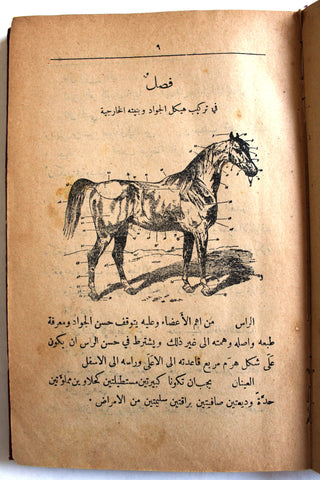 ٩
فصلٌ
في تركيب هيكل الجواد وبنيته الخارجية
الراس من اهم الأعضاء وعليه يتوقف حسن الجواد ومعرفة
طبعه واصله وهمته الى غير ذلك ويشترط في حسن الراس ان يكون
على شكل هرَم مربع قاعدته الى الاعلى وراسه الى الاسفل
العينان يجب ان تكونا كبيرتين مستطيلتين كحلاوين مملوَّتين
حدَّةً وديعتين صافيتين براقتين سليمتين من الامراض .